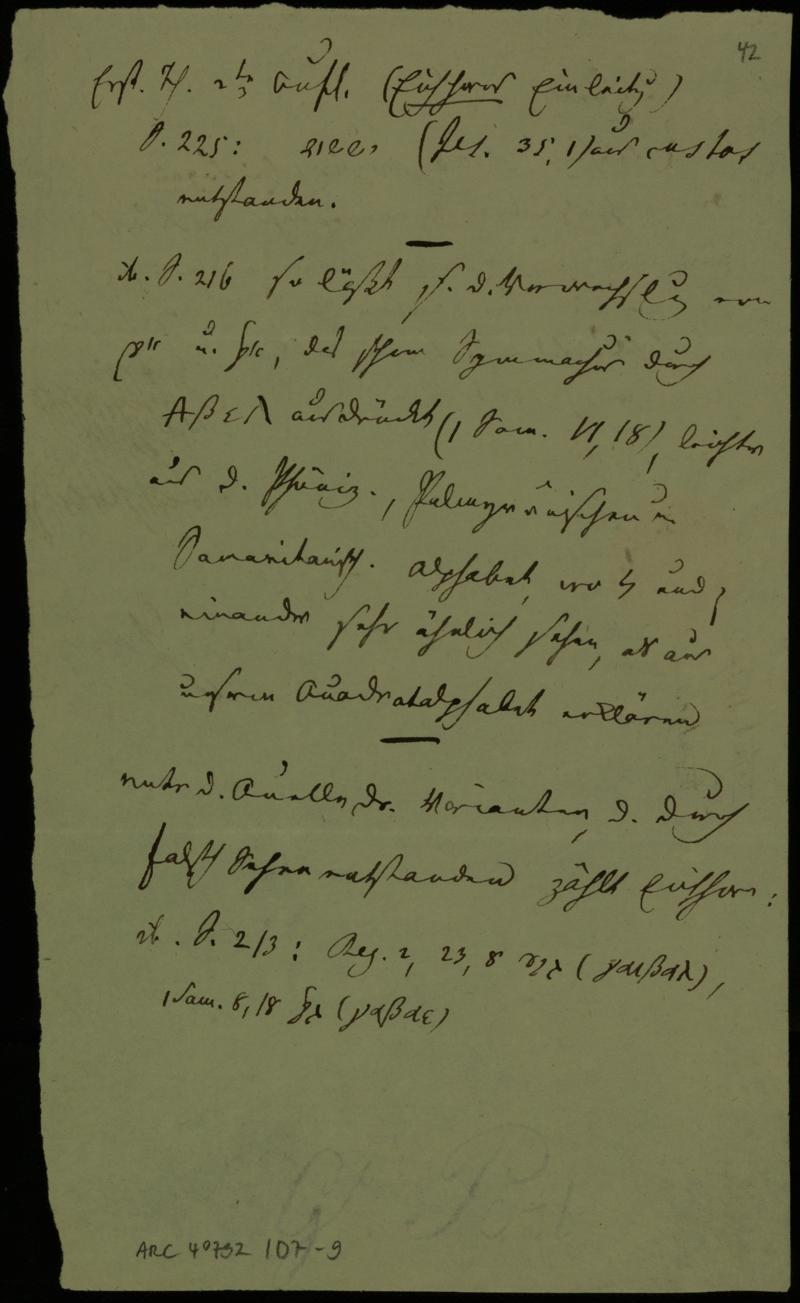 42
Erst. Th. 2te Aufl. (Eichhorns Einleitg)
S. 225: (Jes. 35, 1) aus custos
entstanden.
ib. S. 216 so läßt s. d. Verwechslg von
u. , das schon Symmachus durch
Αβελ ausdrückt (1 Sam. 18), leichter
aus d. Phöniz., Palmyränischen u
Samaritanisch. Alphabet, wo und
einander sehr ähnlich sehen, als aus
unserm Quadratalphabet erklären
unter d. Quellen dr. Varianten, d. durch
falsch Sehen entstanden zählt Eichhorn:
ib. S. 213: Reg. 2, 23, 8 (γαιβαλ),
1 Sam. 8, 18 (γαβαε)
ARC 4°792 107-9